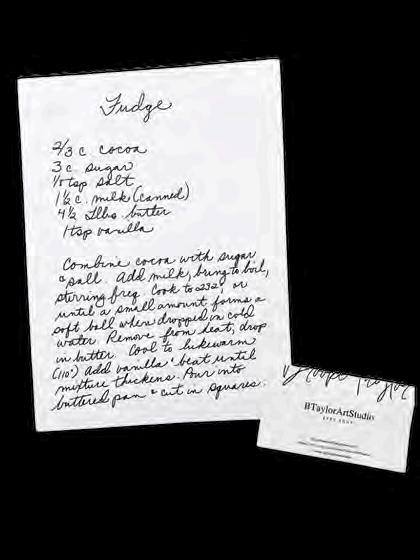 Fudge
2/3 c. cocoa
3 c. sugar
1/8 tsp salt
1 1/2 c. milk (canned)
4 1/2 Tlbs. butter
1 tsp vanilla
Combine cocoa with sugar
& salt. Add milk, bring to boil,
stirring freq. Cook to 232°, or
until a small amount forms a
soft ball when dropped in cold
water. Remove from heat, drop
in butter. Cool to lukewarm
(110°) Add vanilla & beat until
mixture thickens. Pour into
buttered pan & cut in squares.
BTaylorArtStudio